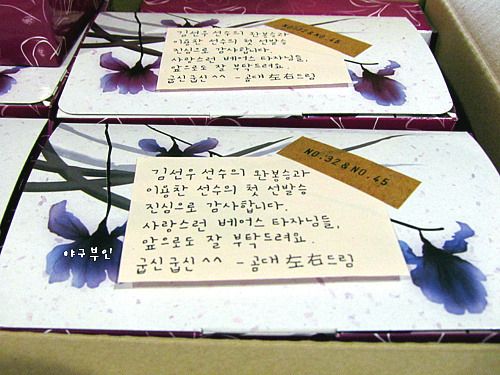 NO.32&NO.45
김선우 선수의 완봉승과
이용찬 선수의 첫 선발승
진심으로 감사합니다.
사랑스런 베어스 타자님들,
앞으로도 잘 부탁드려요.
굽신굽신^^ - 곰대 左右드림
NO.32&NO.45
김선우 선수의 완봉승과
이용찬 선수의 첫 선발승
진심으로 감사합니다.
사랑스런 베어스 타자님들,
앞으로도 잘 부탁드려요.
굽신굽신^^ - 곰대 左右드림
야구부인